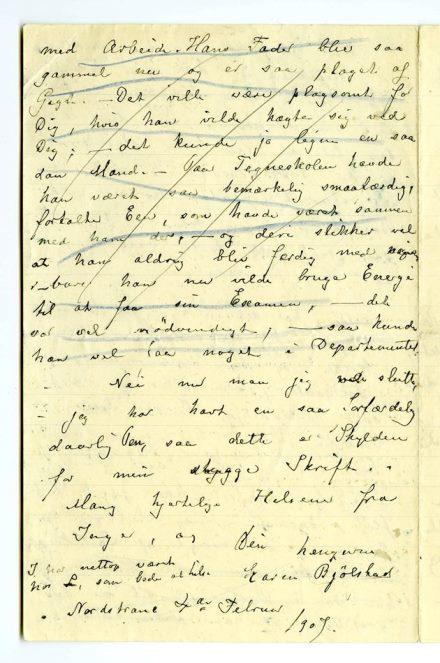 med Arbeide. Hans Fader blir saa
gammel nu og er saa plaget af
Gigt. – Det vilde være plagsomt for
Dig, hvis han vilde hægte sig ved
Dig; – det kunde jo ligne en saa
dan Mand. – Paa Tegneskolen havde
han været saa bemærkelig smaalærdig,
fortalte Een, som havde været sammen
med ham der, – og deri stikker vel
at han aldrig blir færdig med
– bare han nu vilde bruge Energi
til at faa sin Examen, – det
var vel nødvendigt, – saa kunde
han vel faa noget i Departementet.
– Nei nu maa jeg slutte,
– jeg har havt en saa forfærdelig
daarlig Pen, saa dette er Skylden
for min stygge Skrift.
Mang hjertelige Hilsener fra
Inger, og Din hengivne
Karen Bjölstad
I har nettop været
hos L, som bede at hilse
Nordstrand 4de Februar
1907.